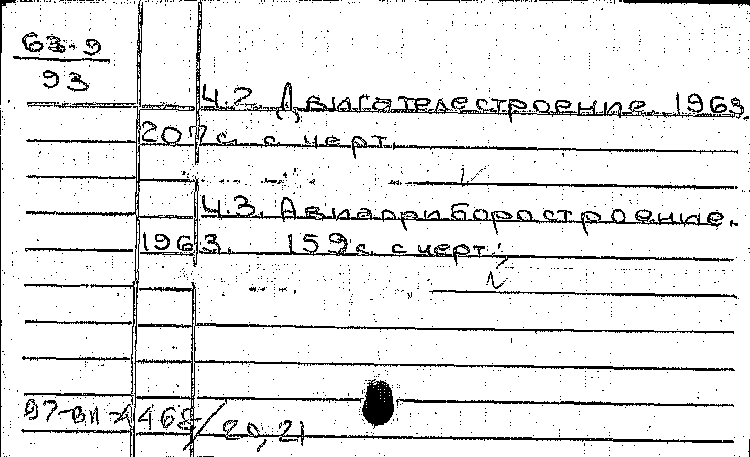 63-9
93
Ч.2. Двигателестроение. 1963.
207 с. с черт.
Ч.3. Авиаприборостроение.
1963. 159 с. с черт.
20, 21